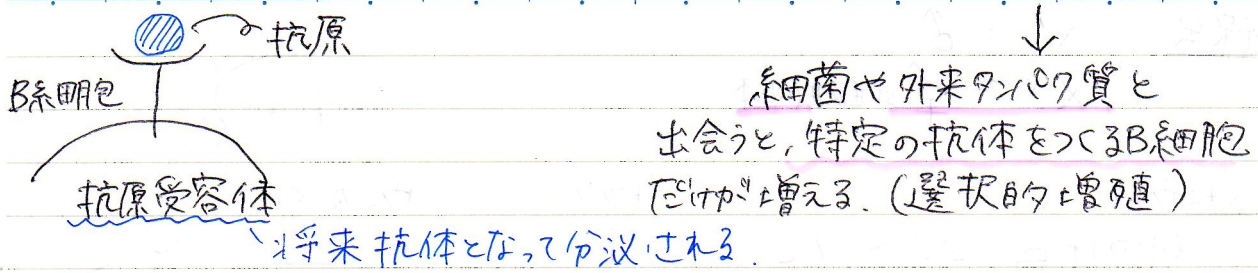 抗原
B細胞
抗原受容体
将来抗体となって分泌される.
↓
細菌や外来タンパク質と
出会うと,特定の抗体をつくるB細胞
だけが増える.(選択的増殖)